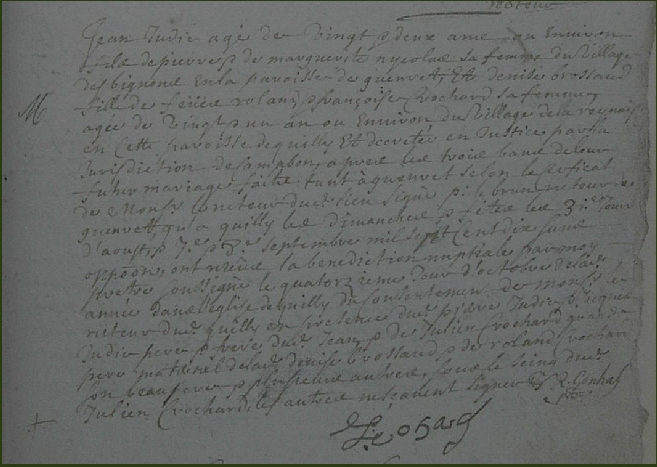 Recteur
Jean Judic agé de Vingt & deux ans ou Environ
fils de pierre & de marguerite nycolas sa femme du Village
des bignons En la paroisse de guenret, Et denise brossaud
fille de roland & françoise Crochard sa femme
M agée de Vingt & un an ou Environ du Village de la
en Cette paroisse de quilly Et decretés en Justice par la
Jurisdiction de Campbon, apres les trois bans de leur
futur mariage faits tant à guenret selon le sertificat
de Mons le recteur dud lieu signé p: le brun recteur de
guenret qu'a quilly les dimanches & fites les 31e Jour
d'aoust, & 7e & 8e septembre mil sept Cent dix sans
opposon, ont reçeu la benediction nuptiale par moy
pretre sousigné le quatorzieme Jour d'octobre de lad
année dans l'eglise de quilly du Consentement de Mons le
recteur dud quilly en presence dud pierre Judic
Judic pere & frere dud Jean, & de Julien Crochard grand
pere maternel de lad denise brossaud & de roland Crochard
son beau frere & plusieurs autres, sous le seing dud
Julien Crochard, les autres ne scavent signer
J: Crochard